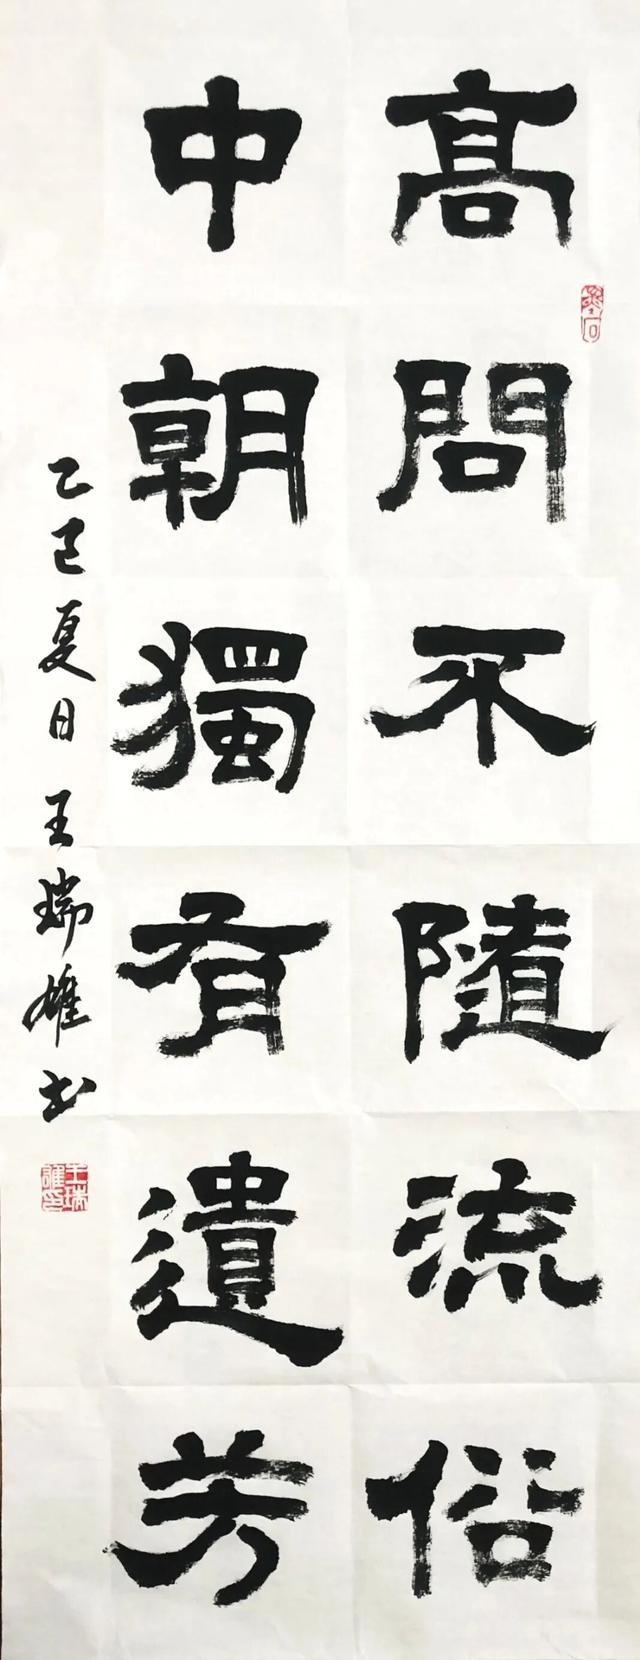 高問不隨流俗
中朝獨有遺芳
乙巳夏日王瑞雄书
墨石
王瑞雄印